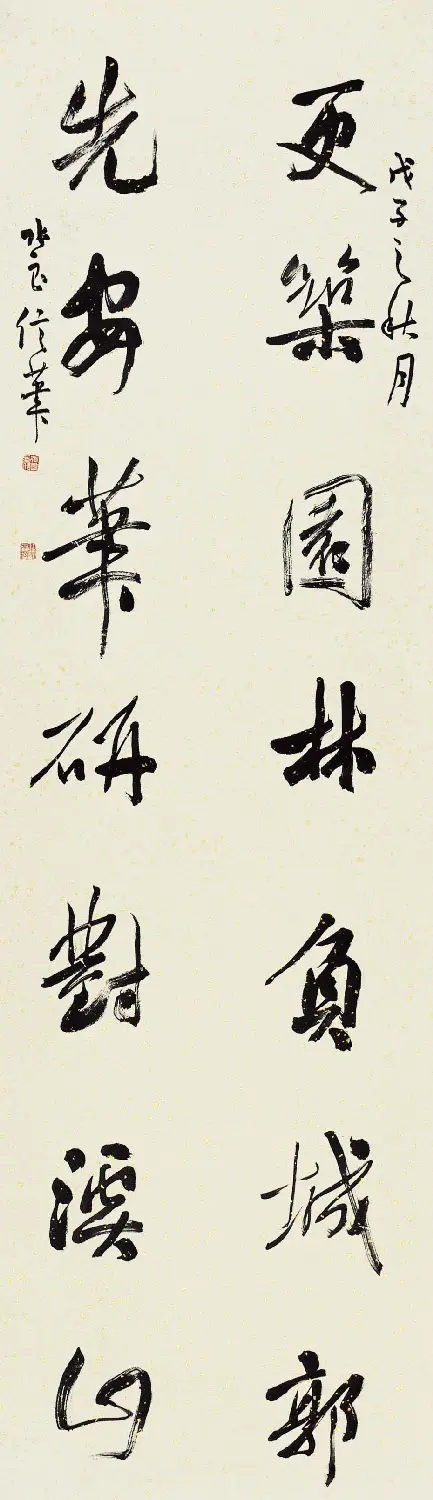 戊子之秋月
更築園林負城郭
先安筆研對溪山
信筆